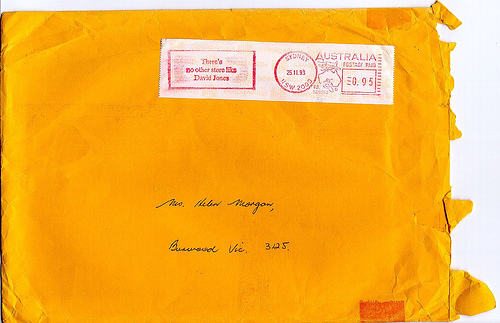 There's
no other store like
David Jones
SYDNEY
25.11.93
N.S.W 2000
AUSTRALIA
POSTAGE PAID
0.95
Mrs. Helen Morgan,
Burwood Vic. 3125.